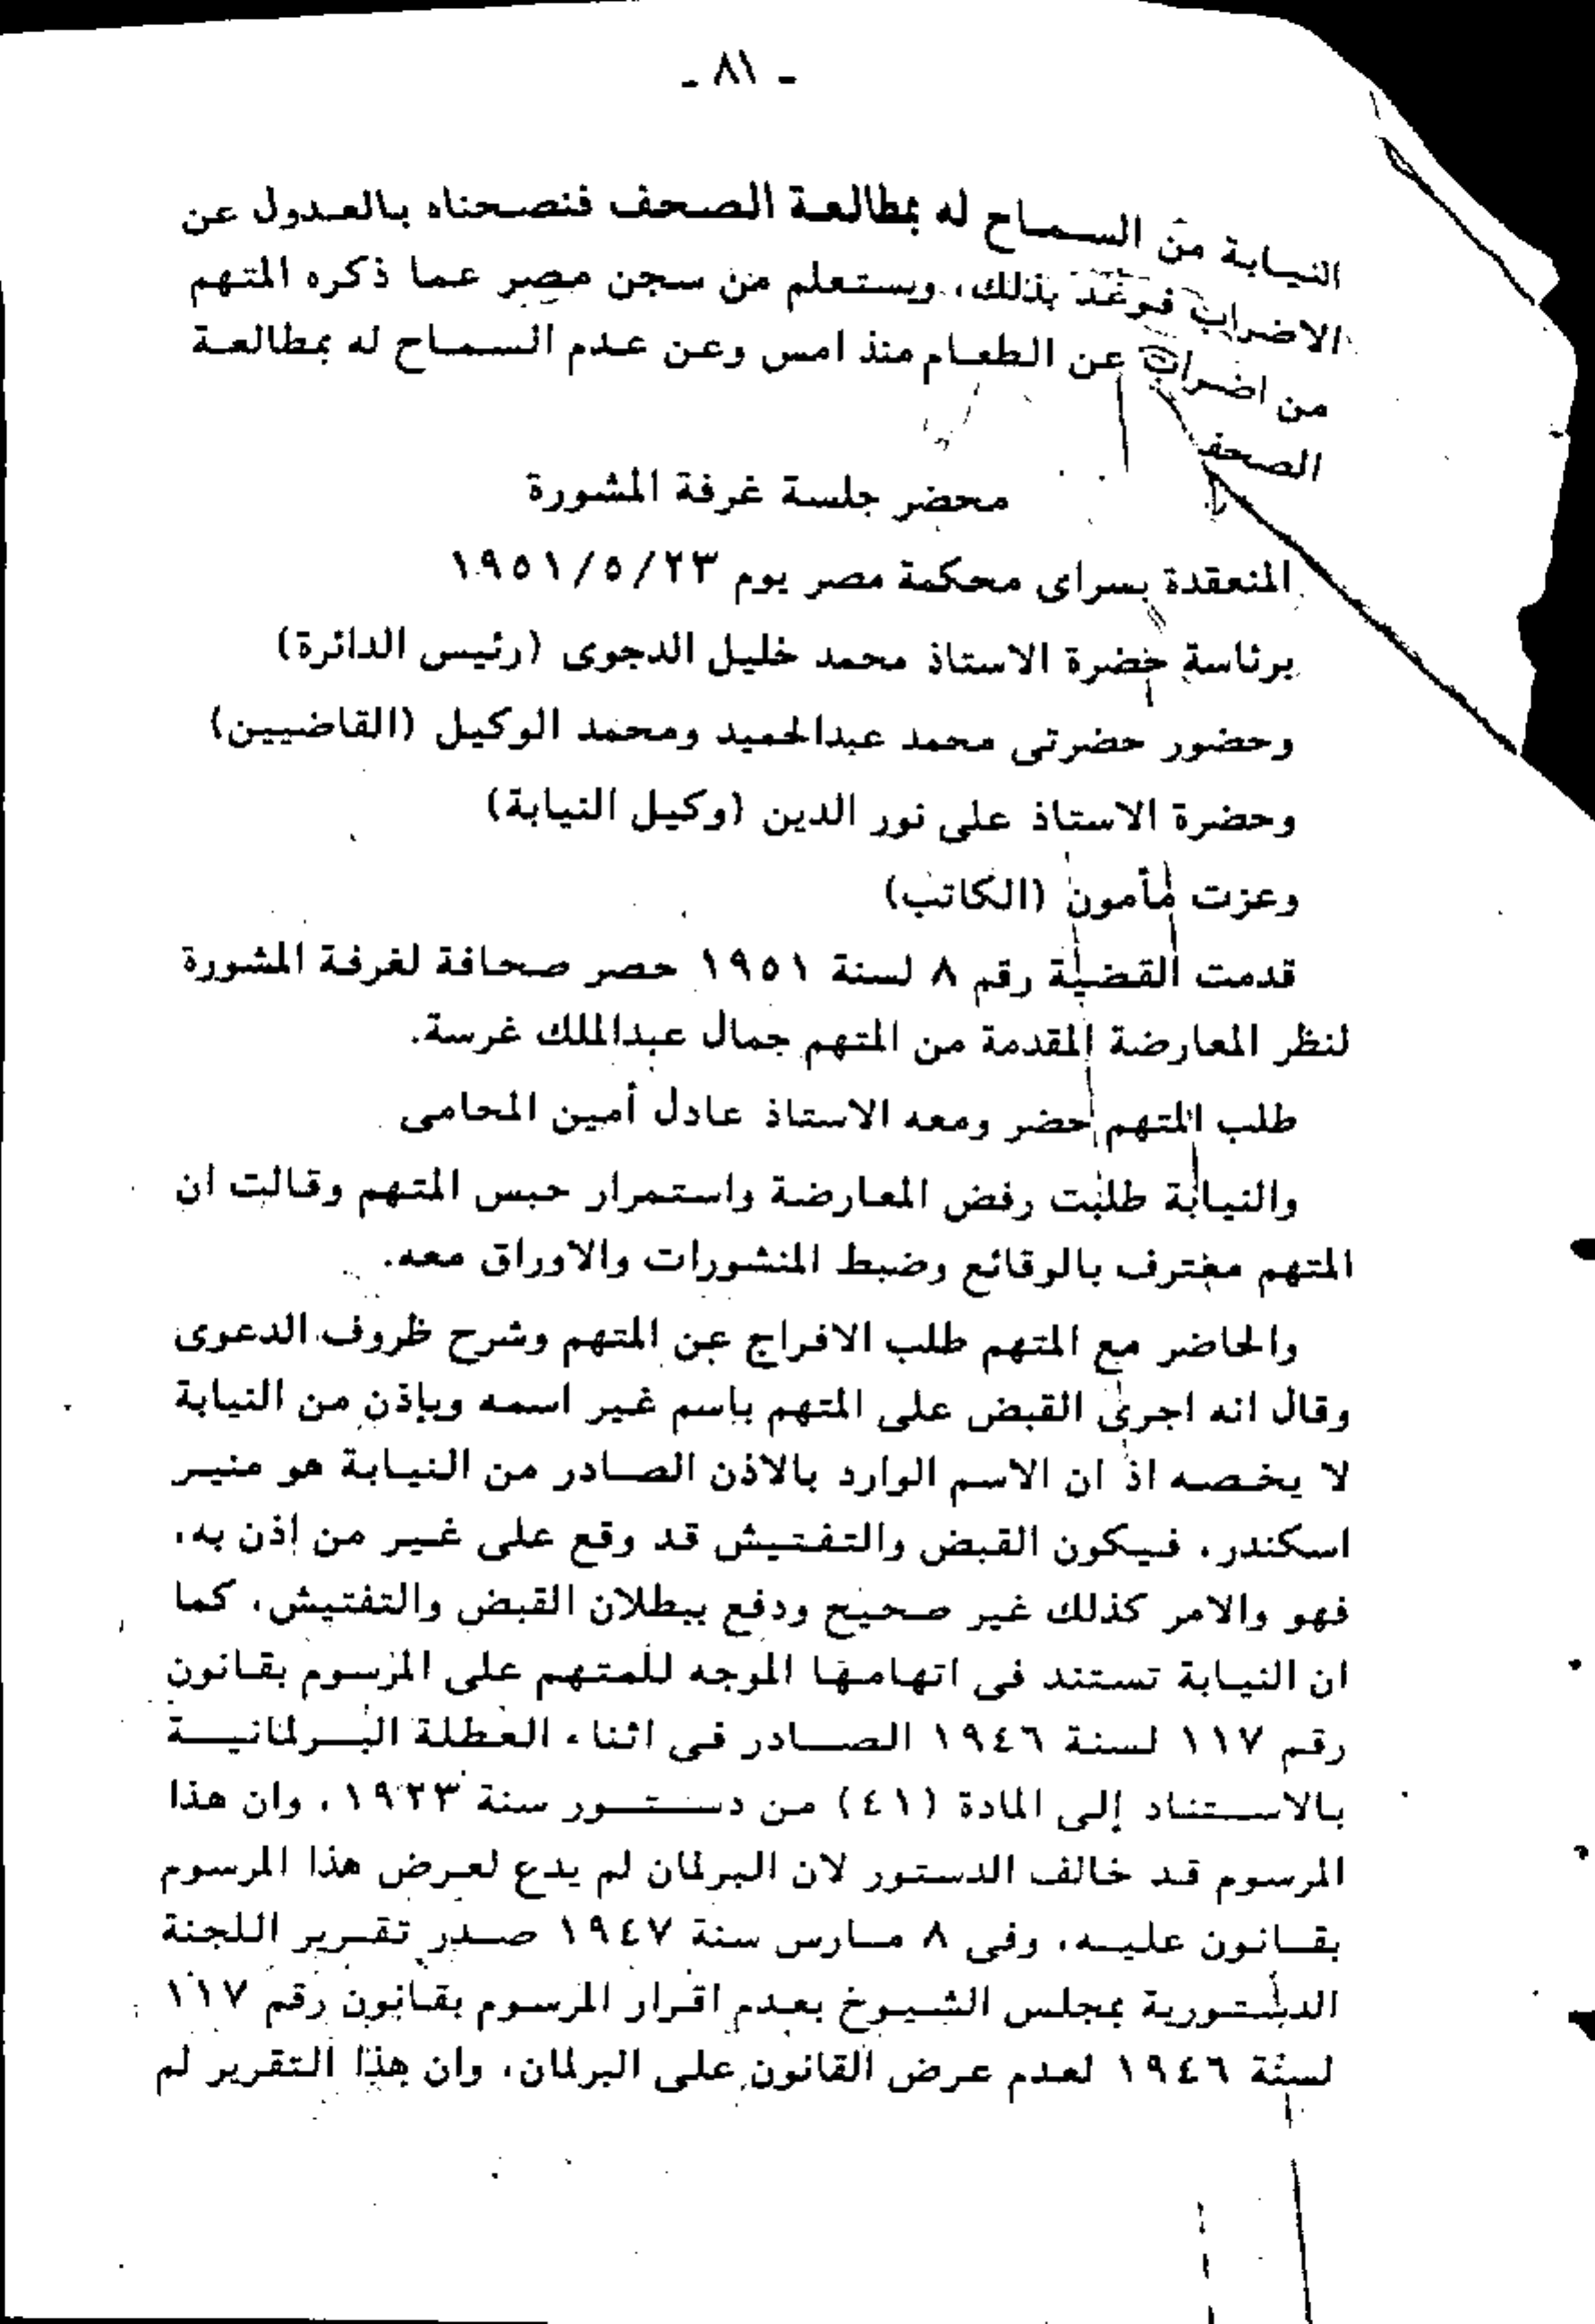 - ٨١ -
النيابة من السماح له بمطالعة الصحف فنصحناه بالعدول عن
الاضراب فوعد بذلك، ويستعلم من سجن مصر عما ذكره المتهم
من اضرابه عن الطعام منذ امس وعن عدم السماح له بمطالعة
الصحف
محضر جلسة غرفة المشورة
المنعقدة بسراى محكمة مصر يوم ١٩٥١/٥/٢٣
برئاسة حضرة الاستاذ محمد خليل الدجوى (رئيس الدائرة)
وحضور حضرتى محمد عبدالحميد ومحمد الوكيل (القاضيين)
وحضرة الاستاذ على نور الدين (وكيل النيابة)
وعزت مأمون (الكاتب)
قدمت القضية رقم ٨ لسنة ١٩٥١ حصر صحافة لغرفة المشورة
لنظر المعارضة المقدمة من المتهم جمال عبدالملك غرسة.
طلب المتهم حضر ومعه الاستاذ عادل أمين المحامى
والنيابة طلبت رفض المعارضة واستمرار حبس المتهم وقالت ان
المتهم معترف بالوقائع وضبط المنشورات والاوراق معه.
والحاضر مع المتهم طلب الافراج عن المتهم وشرح ظروف الدعوى
وقال انه اجرى القبض على المتهم باسم غير اسمه وبإذن من النيابة
لا يخصه اذ ان الاسم الوارد بالاذن الصادر من النيابة هو منير
اسكندر. فيكون القبض والتفتيش قد وقع على غير من اذن به،
فهو والامر كذلك غير صحيح ودفع ببطلان القبض والتفتيش. كما
ان النيابة تستند فى اتهامها الموجه للمتهم على المرسوم بقانون
رقم ١١٧ لسنة ١٩٤٦ الصادر فى اثناء العطلة البرلمانية
بالاستناد إلى المادة (٤١) من دستور سنة ١٩٢٣. وان هذا
المرسوم قد خالف الدستور لان البرلمان لم يدع لعرض هذا المرسوم
بقانون عليه. وفى ٨ مارس سنة ١٩٤٧ صدر تقرير اللجنة
الدستورية بمجلس الشيوخ بعدم اقرار المرسوم بقانون رقم ١١٧
لسنة ١٩٤٦ لعدم عرض القانون على البرلمان، وان هذا التقرير لم